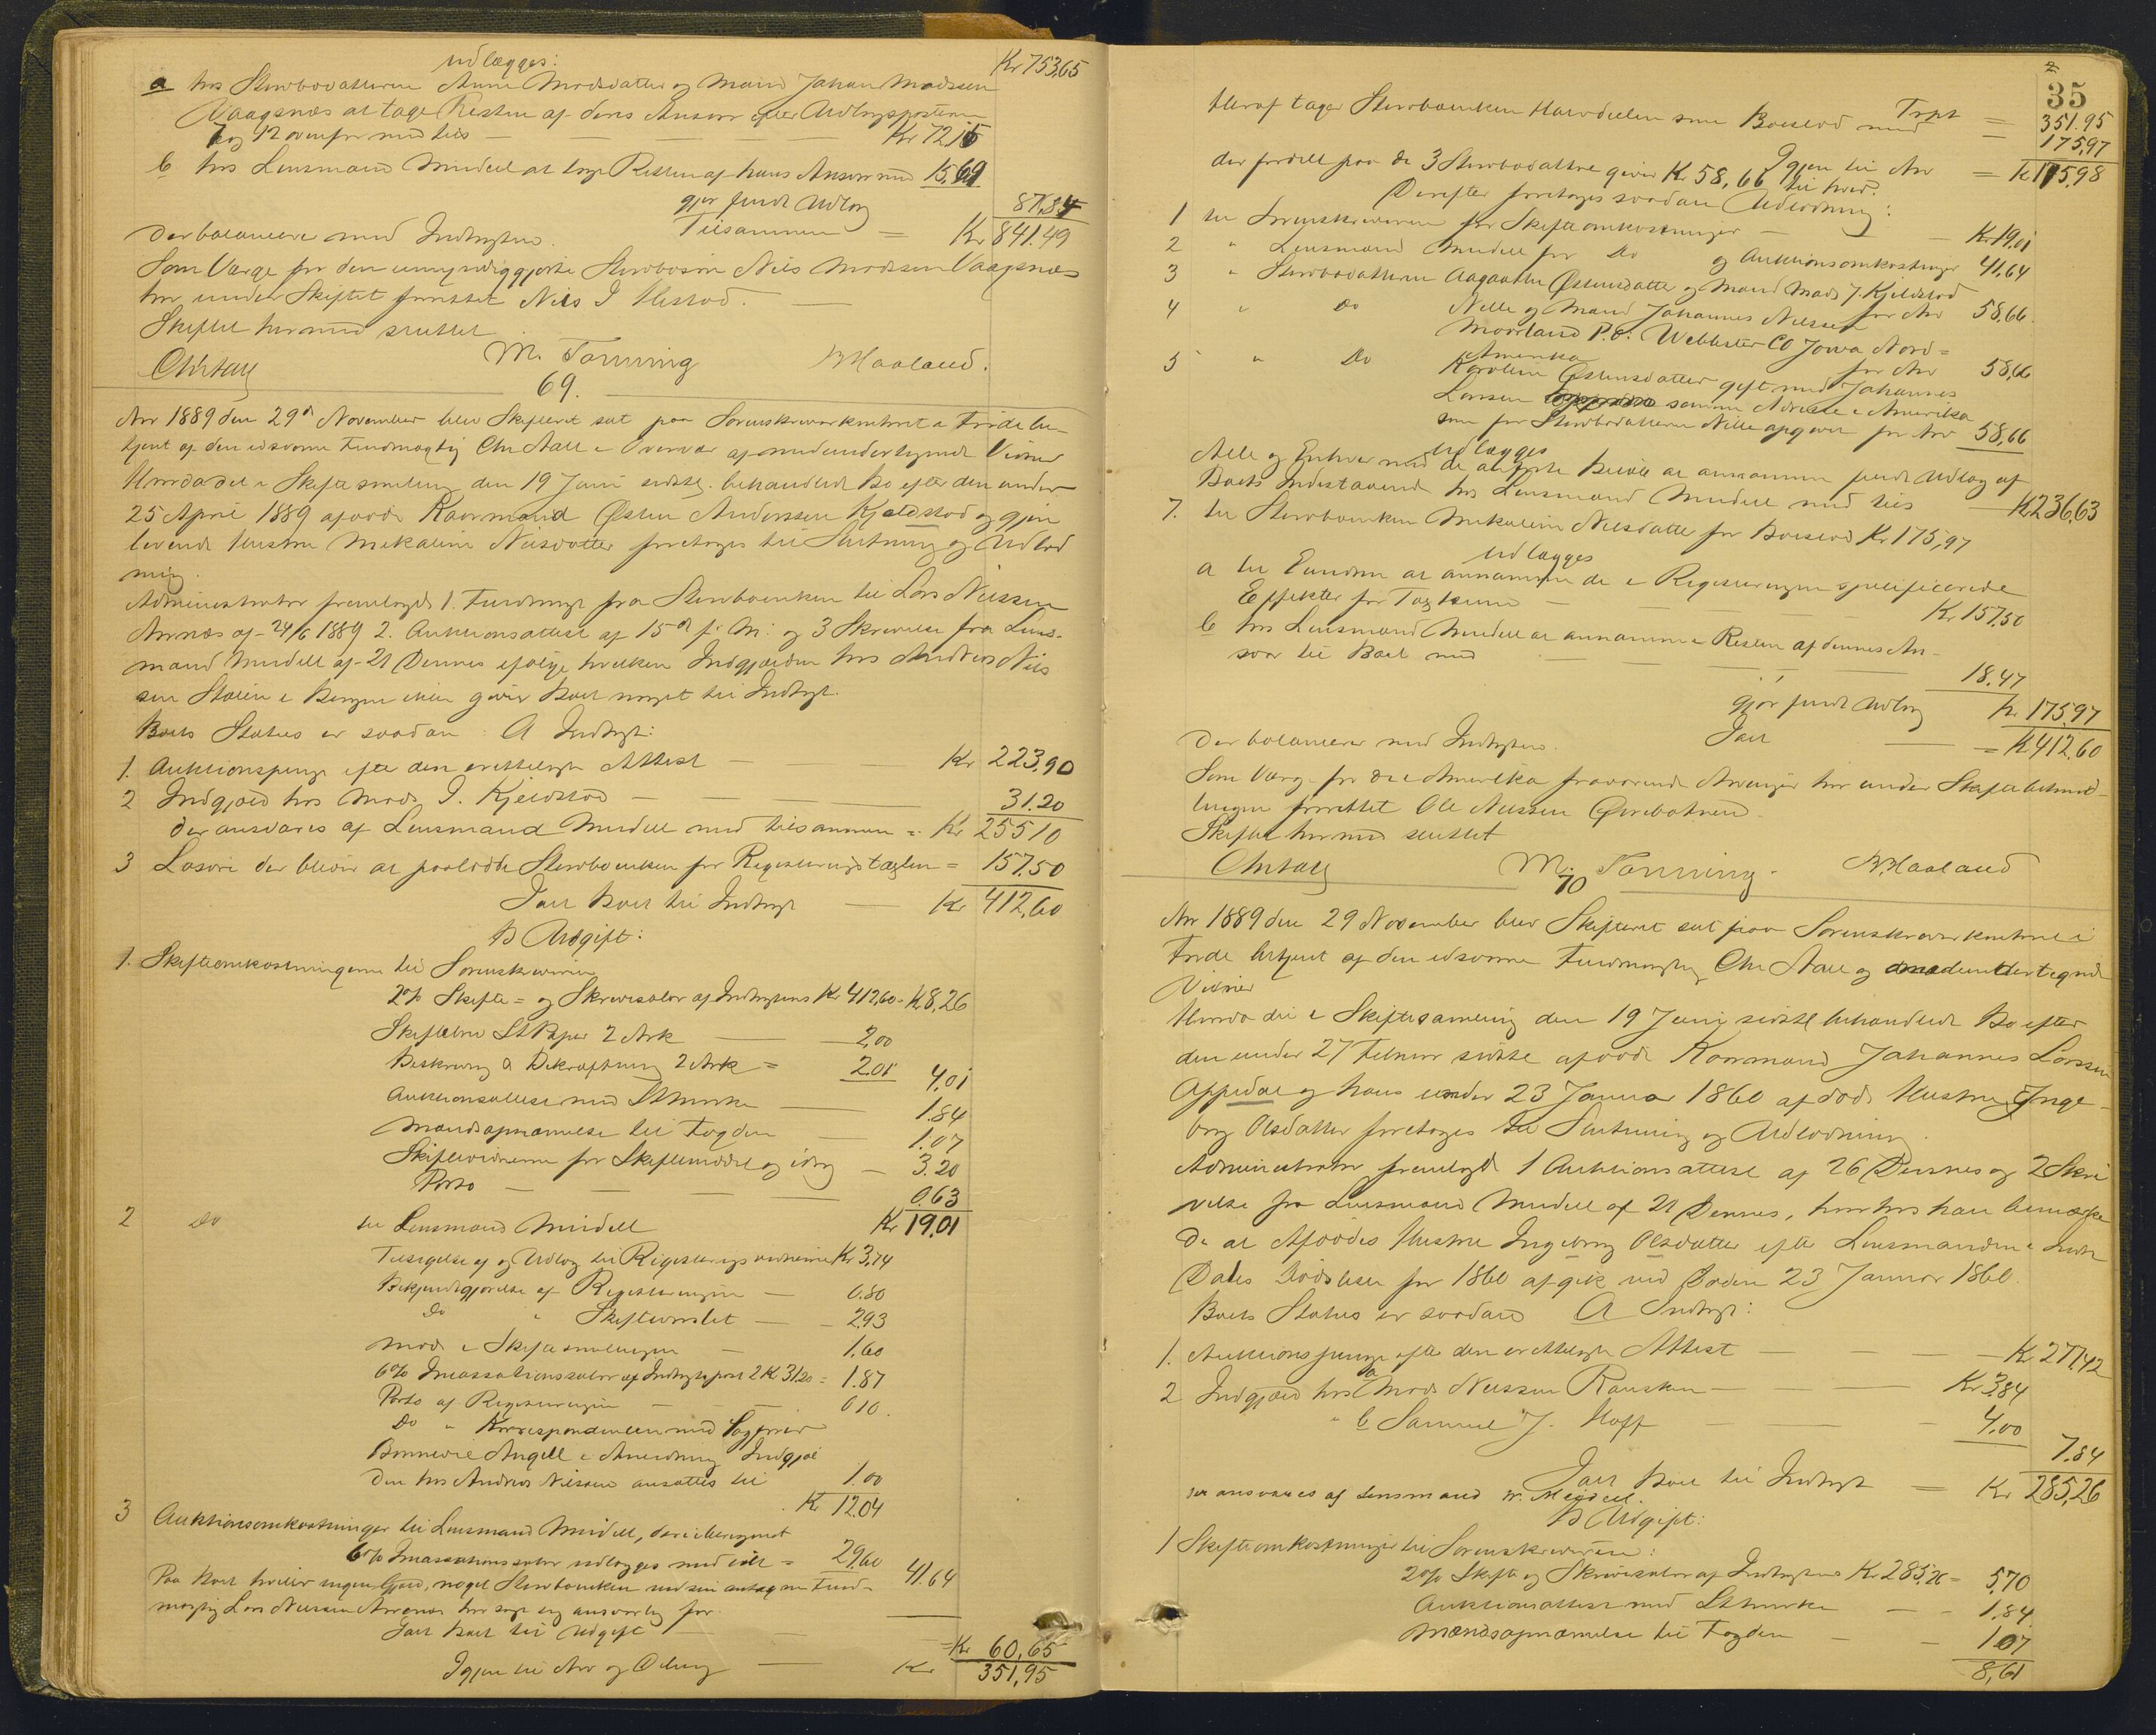 udlægges: Kr 753,65
a hos Stervbodatteren Anne Madsdatter og Mand Johan Madsen
Vaagsnæs at tage Resten af dens Ansvar efter Udlægsposterne
7 og 12 ovenfor med tils — Kr 72,15
b hos Lensmand Meidell at tage Resten af hans Ansvar med 15,69
gjør fuldt Udlæg 87,84
der balancere med Indtægten. Tilsammen = Kr 841.49
Som Værge for den umyndiggjorte Stervbosøn Nils Madsen Vaagsnæs
har under Skiftet forrettet Nils J. Hestad.
Skiftet hermed sluttet
Chr Aall M. Tønning B Haaland.
69.
Aar 1889 den 29de November blev Skifteret sat paa Sorenskriverkontoret i Førde be-
tjent af den edsvorne Fuldmægtig Chr Aall i Overvær af medundertegnede Vidner
Hvorda det i Skiftesamling den 19 Juni sidstl. behandlede Bo efter den under
25 April 1889 afdøde Kaarmand Østen Anderssen Kjeldstad og gjen
levende Hustru Mikaline Nilsdatter foretages til Slutning og Udlod
ning.
Administrator fremlagde 1. Fuldmagt fra Stervboenken til Lars Nilssen
Aarnæs af 24/6 1889 2. Auktionsattest af 15de f. M. og 3 Skrivelse fra Lens-
mand Meidell af 21 Dennes ifølge hvilken Indgjælden hos Andreas Nils
sen Stølen i Bergen ikke giver Boet noget til Indtægt.
Boets Status er saadan: A Indtægt:
1. Auktionspenge efter den erkttelagte Attest — Kr 223,90
2 Indgjæld hos Mads J. Kjeldstad — 31.20
der ansvares af Lensmand Meidell med tilsammen = Kr 255 10
3 Løsøre der bliver at paalodde Stervboenken for Registreringstaxten = 157.50
Ialt Boet til Indtægt — Kr 412,60
B Udgift:
1. Skifteomkostningerne til Sorenskriveren
2% Skifte- og Skriversalær af Indtægtens Kr 412,60 = Kr 8,26
Skiftebrev St Papir 2 Ark — 2,00
Beskrivning & Bekræftning 2 Ark = 2.01 4,01
Auktionsattest med St mærke — 1.84
Mandsopnævnelse til Fogden — 1.07
Skiftevidnerne for Skiftemødet og idag — 3.20
Porto — 0.63
Kr 19,01
2 Do til Lensmand Meidell
Tilsigelse af og Udlæg til Registreringsvidnerne Kr 3,74
Bekjendtgjørelse af Registreringen — 0.80
Do " Skiftevarslet — 2.93
Møde i Skiftesamlingen — 1.60
6% Incassationssalær af Indtægtspost 2 Kr 31.20 = 1.87
Porto af Registreringen — 0 10.
Do " Korrespondencen med Sagfører
Bonnevie Angell i Anledning Indgjæl
den hos Andreas Nilssen ansættes til 1.00
Kr 12.04
3 Auktionsomkostninger til Lensmand Meidell, deri iberegnet
6% Incassationssalær udlægges med ialt = 29,60 41.64
Paa Boet hviler ingen Gjæld, noget Stervboenken ved sin antagne Fuld-
mægtig Lars Nilssen Aarnæs har sagt sig ansvarlig for.
Ialt Boet til Udgift — = Kr 60,65
Igjen til Arv og Deling — Kr 351,95
35
Trpt = 351.95
Heraf tager Stervboenken Halvdelen som Boeslod med = 175,97
Igjen til Arv = K 175,98
der fordelt paa de 3 Stervbodattre giver Kr 58,66 til hver.
Derefter foretages saadan Udlodning:
1 til Sorenskriveren for Skifteomkostninger — Kr 19.01
2 " Lensmand Meidell for Do og Auktionsomkostninger 41.64
3 " Stervbodatteren Aagaathe Østensdatter og Mand Mads J. Kjeldstad
for Arv 58,66.
4 " Do Nille og Mand Johannes Nilssen
Moorland P.O: Webbster CO Jowa Nord=
Amerika for Arv 58,66
5 " Do Karoline Østensdatter gift med Johannes
Larsen samme Adresse i Amerika
som for Stervbodatteren Nille opgivet for Arv 58,66
udlægges
Alle og Enhver med de anførte Beløb at annamme fuldt Udlæg af
Boets Indestaaende hos Lensmand Meidell med tils — K 236,63
7. til Stervboenken Mikaline Nilsdatter for Boeslod Kr 175,97
udlægges
a til Eiendom at annamme de i Registreringen specificerede
Effekter for Taxtsum — Kr 157.50
b hos Lensmand Meidell at annamme Resten af dennes An-
svar til Boet med — 18.47
gjør fuldt Udlæg Kr 175,97
der balancerer med Indtægten. Ialt — = K 412,60
Som Værge for de i Amerika fraværende Arvinger har under Skiftebehand-
lingen forrettet Ole Nilssen Øvrebotnen.
Skiftet hermed sluttet
Chr Aall M. Tønning. B Haaland
70
Aar 1889 den 29 November blev Skifteret sat paa Sorenskriverkontoret i
Førde betjent af den edsvorne Fuldmægtig Chr Aall og medundertegnede
Vidner
Hvorda det i Skiftesamling den 19 Juni sidstl behandlede Bo efter
den under 27 Februar sidstl afdøde Kaarmand Johannes Larssen
Appedal og hans under 23 Januar 1860 afdøde Hustru Inge-
borg Olsdatter foretages til Slutning og Udlodning.
Administrator fremlagde 1 Auktionsattest af 26 Dennes og 2 Skri
velse fra Lensmand Meidell af 21 Dennes, hvorhos han bemærke
de at Afdødes Hustru Ingeborg Olsdatter efter Lensmanden i Indre
Dales Dødslister for 1860 afgik ved Døden 23 Januar 1860.
Boets Status er saadan A Indtægt:
1. Auktionspenge efter den erkttelagte Attest — Kr 277,42
2 Indgjæld hos a Mads Nilssen Rausken — Kr 3,84
" b Samuel J. Hoff — 4,00
7.84
Ialt Boet til Indtægt = Kr 285,26
der ansvares af Lensmand W. Meidell.
B Udgift:
1 Skifteomkostninger til Sorenskriveren:
2% Skifte og Skriversalær af Indtægtens Kr 285,26 = 5,70
Auktionsattest med St mærke — 1,84
Mandsopnævnelse til Fogden — 1.07
8,61